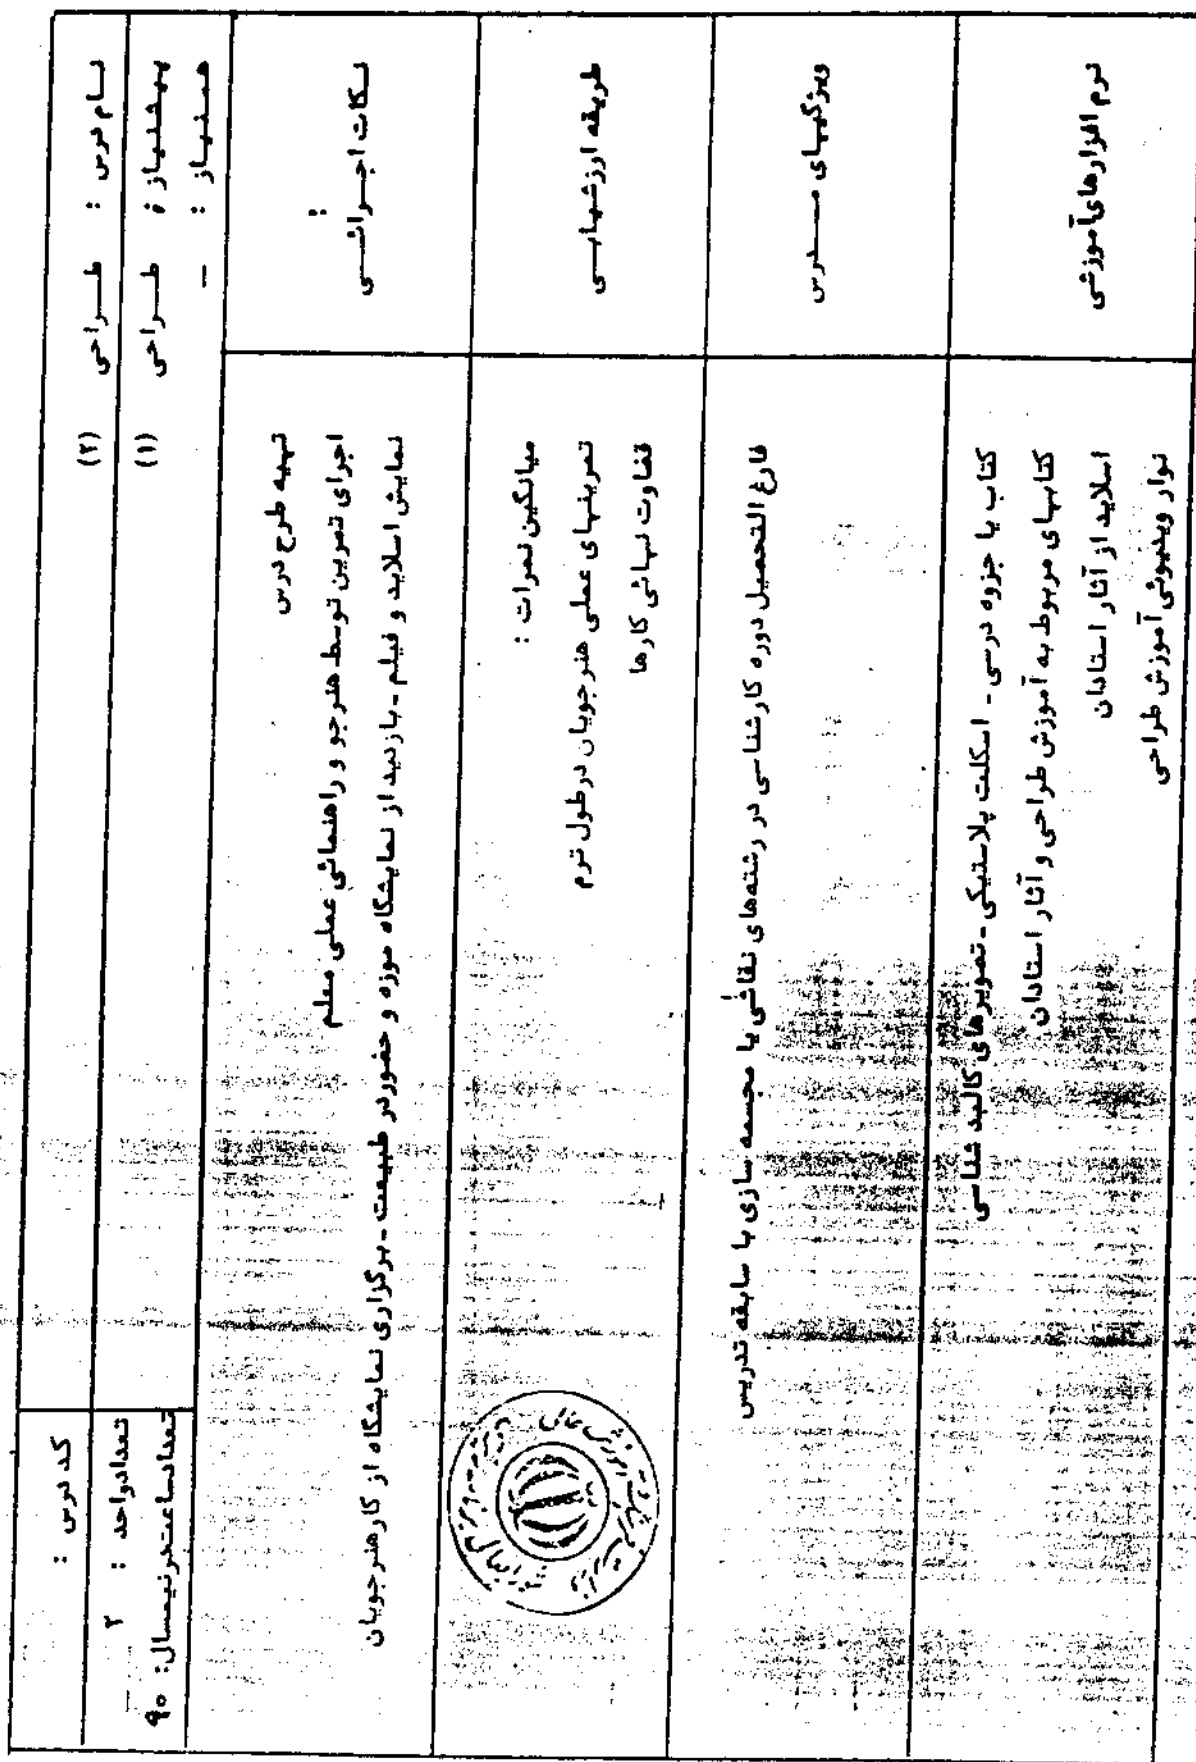 نام درس : طراحی (۲)
کد درس :
پیشنیاز : طراحی (۱)
تعداد واحد : ۲
همنیاز : -
تعداد ساعت در نیمسال: ۹۰
نکات اجرائی :
تهیه طرح درس
اجرای تمرین توسط هنرجو و راهنمائی عملی معلم
نمایش اسلاید و فیلم - بازدید از نمایشگاه موزه و حضور در طبیعت - برگزاری نمایشگاه از کار هنرجویان
طریقه ارزشیابی
میانگین نمرات :
تمرینهای عملی هنرجویان در طول ترم
قضاوت نهائی کارها
ویژگیهای مدرس
فارغ التحصیل دوره کارشناسی در رشته‌های نقاشی یا مجسمه سازی با سابقه تدریس
نرم افزارهای آموزشی
کتاب یا جزوه درسی - اسکلت پلاستیکی - تصویرهای کالبد شناسی
کتابهای مربوط به آموزش طراحی و آثار استادان
اسلاید از آثار استادان
نوار ویدیوئی آموزش طراحی